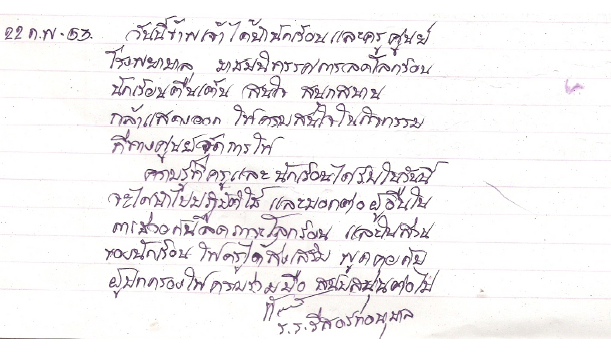 22 ก.พ. 53. วันนี้ข้าพเจ้า ได้นำนักเรียน และครู ศูนย์
โรงพยาบาล มาชมนิทรรศการลดโลกร้อน
นักเรียนตื่นเต้น สนใจ สนุกสนาน
กล้าแสดงออก ให้ความสนใจในกิจกรรม
ที่ทางศูนย์จัดการให้
ความรู้ที่ครูและนักเรียนได้รับในวันนี้
จะได้นำไปปฏิบัติใช้ และบอกต่อผู้อื่นใน
การช่วยกันลดภาวะโลกร้อน และในส่วน
ของนักเรียน ให้ครูได้ส่งเสริม พูดคุยกับ
ผู้ปกครองให้ความร่วมมือ สนับสนุนต่อไป
ร.ร.